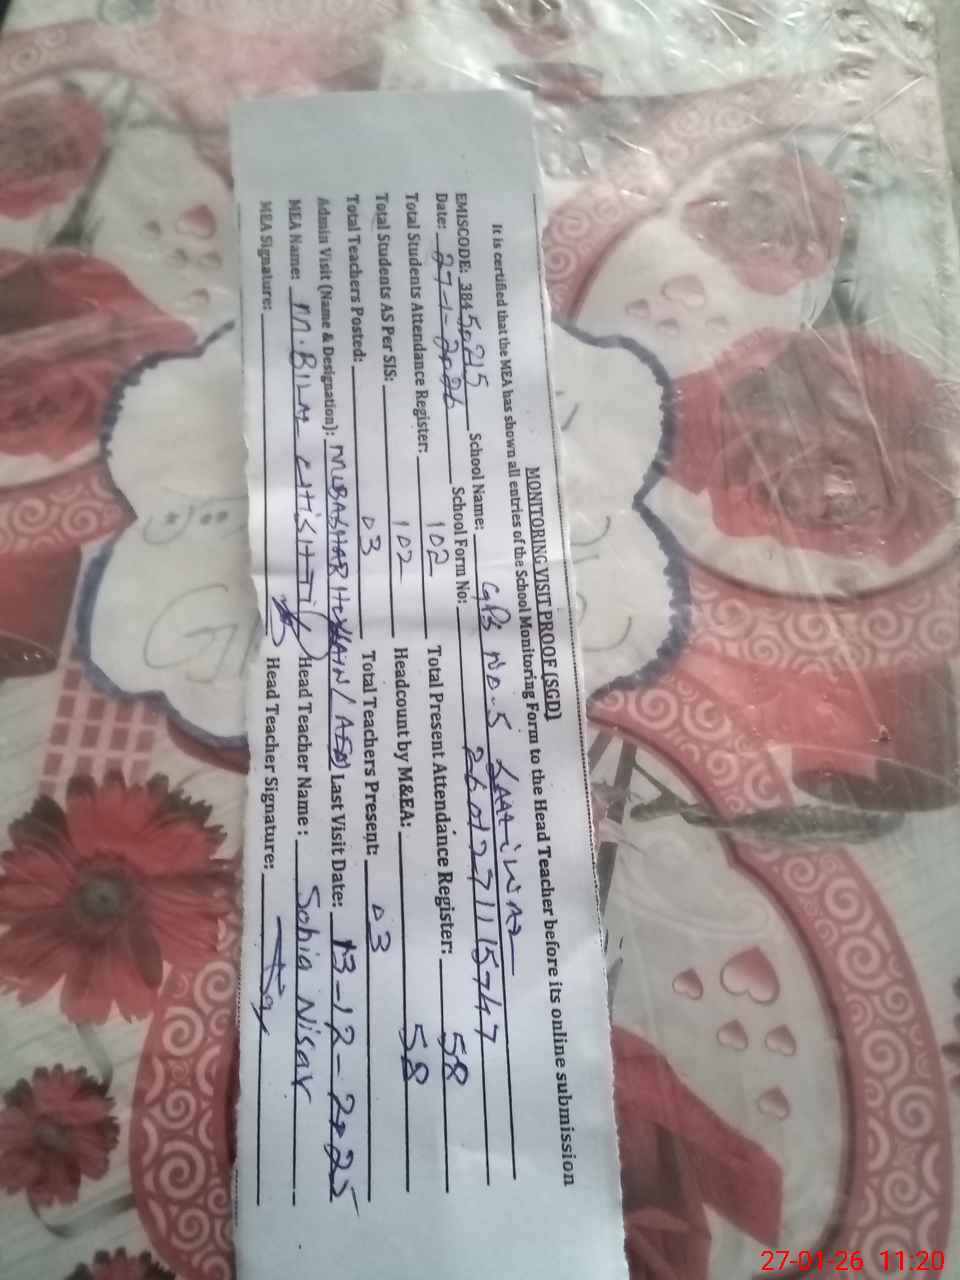 MONITORING VISIT PROOF (SGD)
It is certified that the MEA has shown all entries of the School Monitoring Form to the Head Teacher before its online submission
EMISCODE: 38450215 School Name: GPS NO.5
Date: 27-1-2026 School Form No: 2601271115747
Total Students Attendance Register: 102 Total Present Attendance Register: 58
Total Students AS Per SIS: 102 Headcount by M&EA: 58
Total Teachers Posted: 03 Total Teachers Present: 03
Admin Visit (Name & Designation): MUBASHAR HUSSAIN / AEO Last Visit Date: 13-12-2025
MEA Name: M. CHISHTI Head Teacher Name: Sobia Nisar
MEA Signature: Head Teacher Signature:
27-01-26 11:20